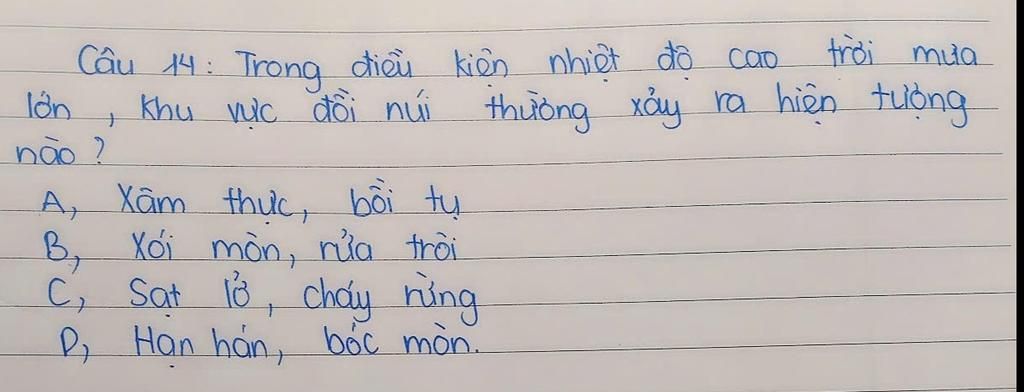 Câu 14: Trong điều kiện nhiệt độ cao trời mưa
lớn, khu vực đồi núi thường xảy ra hiện tượng
nào?
A, Xâm thực, bồi tụ
B, Xói mòn, rửa trôi
C, Sạt lở, cháy rừng
D, Hạn hán, bóc mòn.